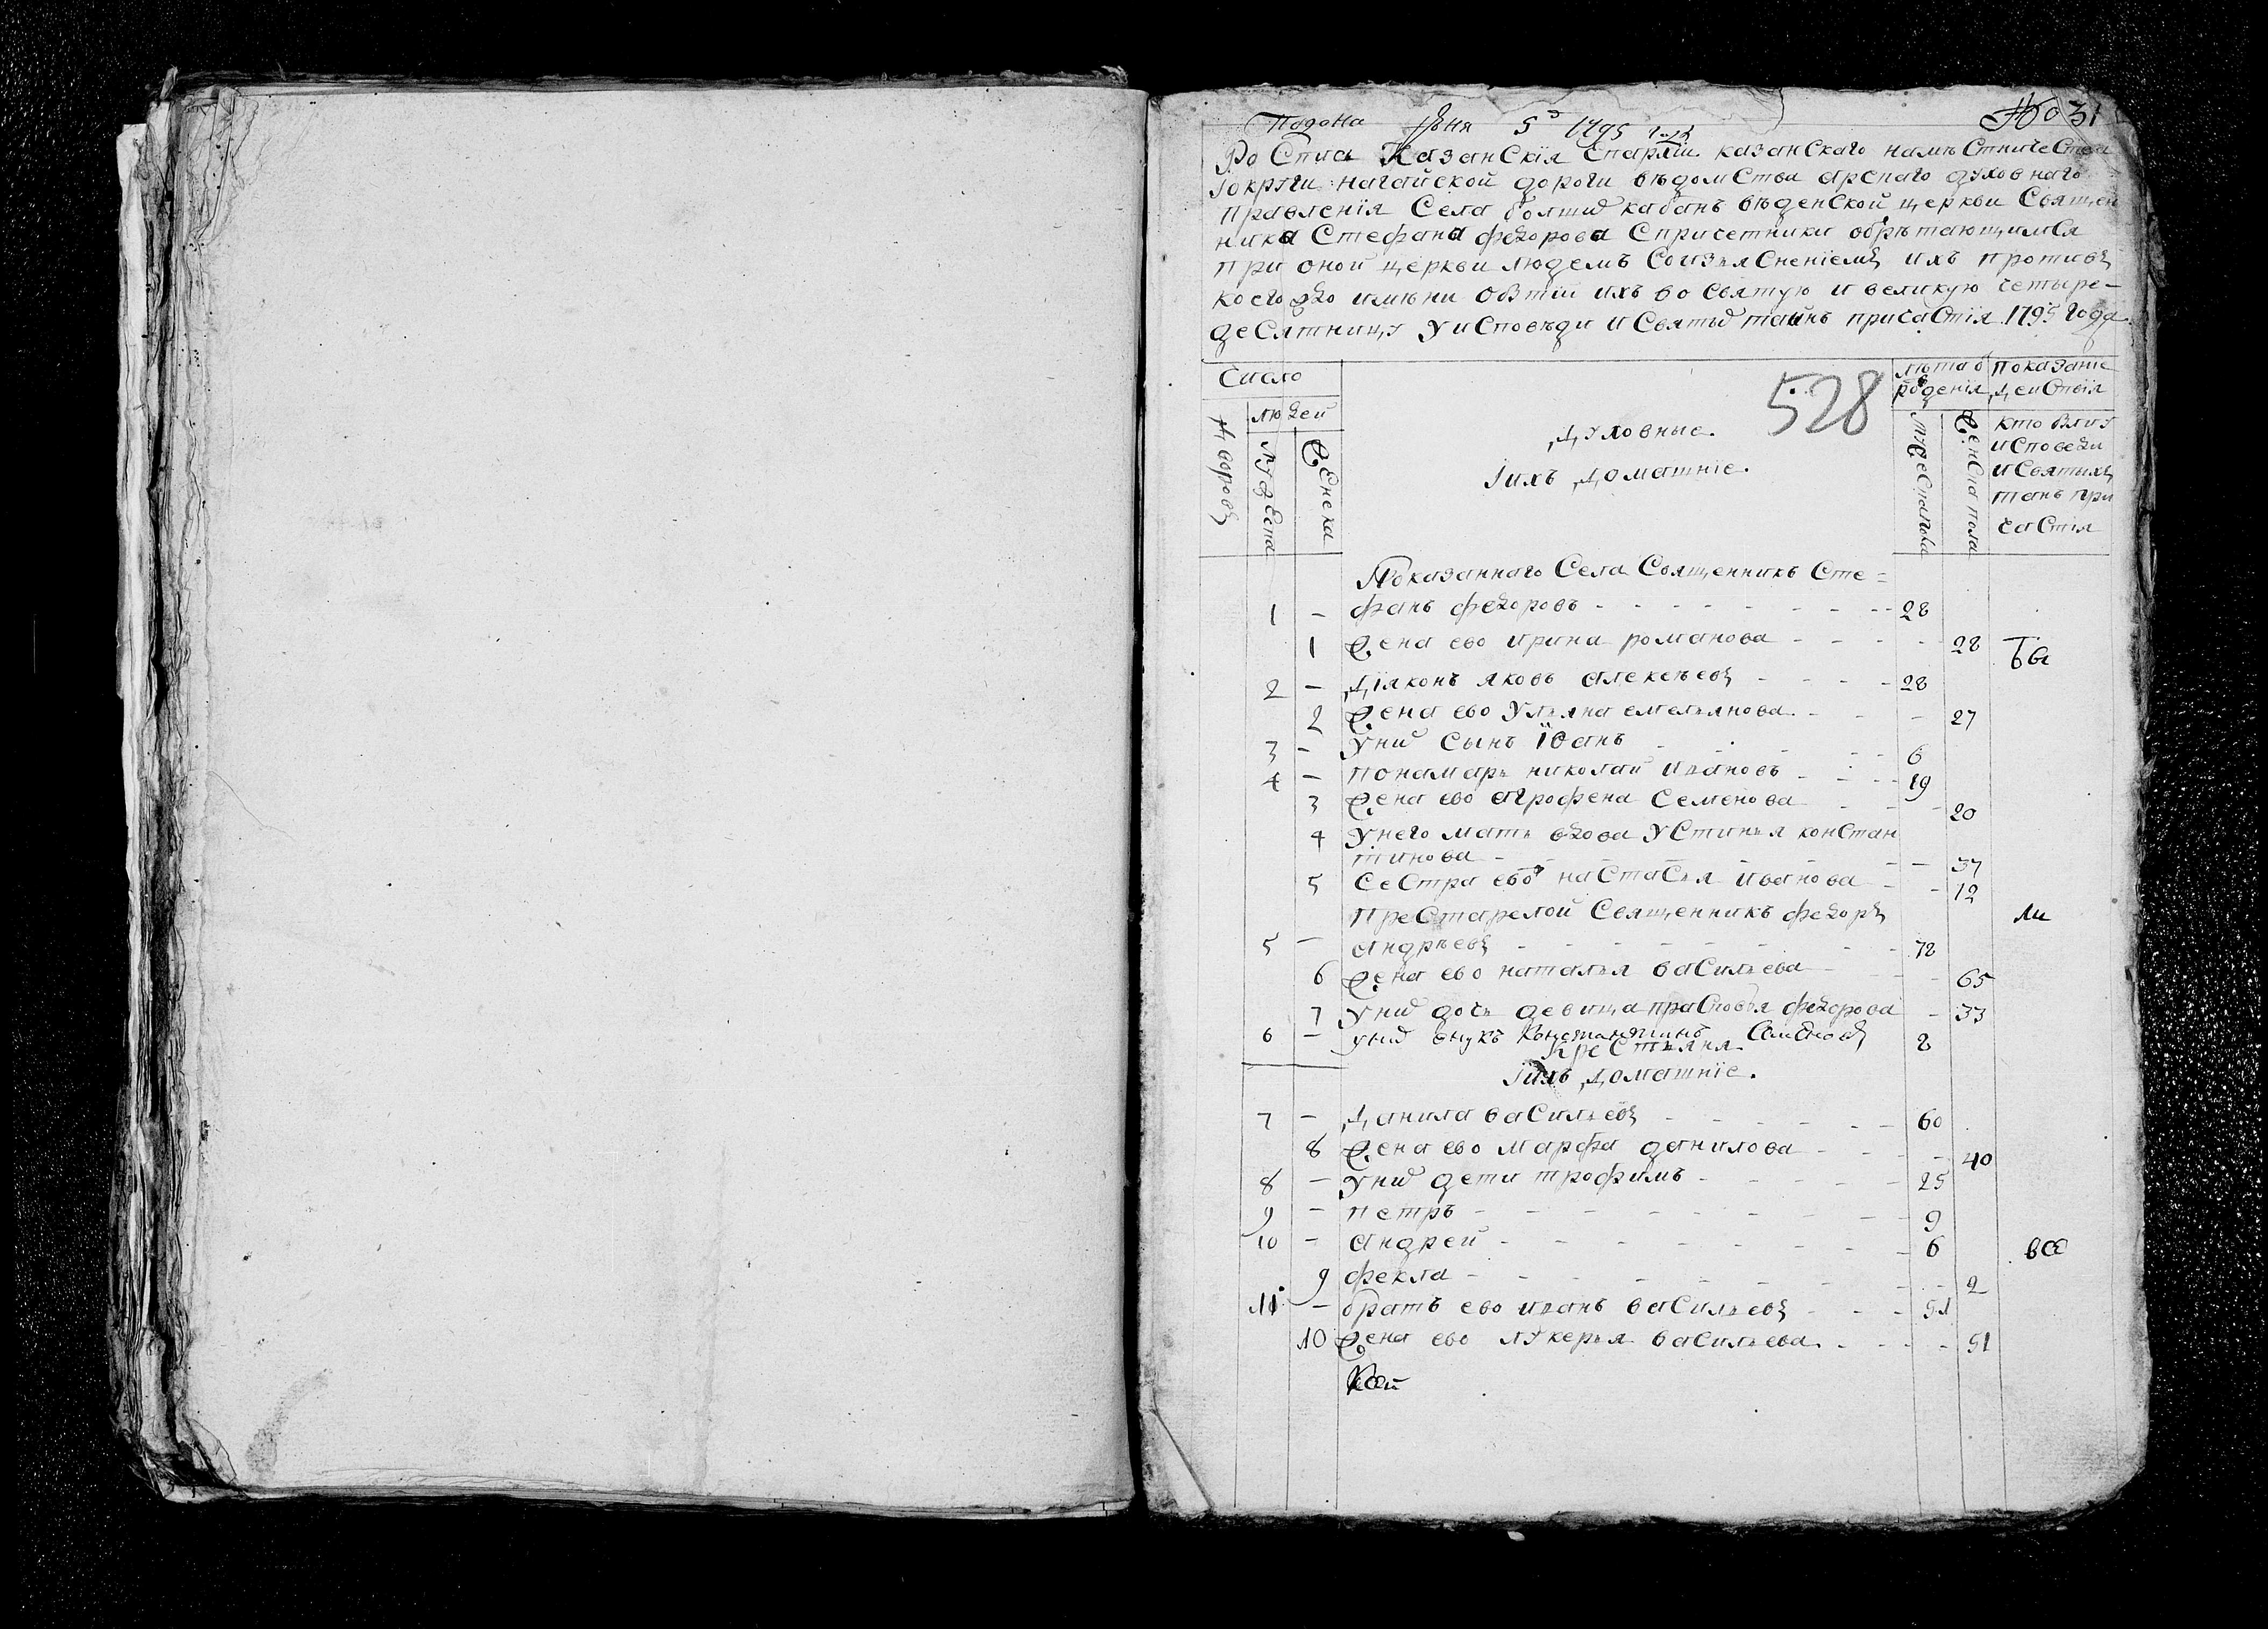 Подана Июня 5 1795 года
№ 31
Роспись Казанския Епархии казанскаго намѣстничества
округи нагайской дороги вѣдомства арскаго духовнаго
правления Села болших кабанъ въденской церкви Священ
ника Стефана федорова Спричетники обрѣтающимся
при оной церкви людемъ Соизъяснениемъ ихъ противъ
коегождо имени бытии ихъ во Святую и великую четыре-
десятницу у исповѣди и Святых таинъ причастия 1795 года
Число
людей
дворовъ
мужеска
женска
528
Духовные.
Iихъ Домашнiе.
лѣта от рождения
мужеска пола
женска пола
показание действия
кто былъ у
исповеди
и Святыхъ
таинъ при
частия
Показаннаго Села Священникъ Сте=
1 - фанъ федоровъ - 28
1 жена ево ирина романова - 28
бы
2 - Дiяконъ яковъ алексѣевъ - 28
2 жена ево ульяна емельянова - 27
3 - у них сынъ Iоанъ - 6
4 - понамарь николаи ивановъ - 19
3 жена ево аграфена Семенова - 20
4 у него мать вдова устинья констан
тинова - 37
5 Сестра ево настасья иванова - 12
престарелой Священникъ федоръ
ли
5 - андрѣевъ - 72
6 жена ево наталья васильева - 65
7 у них дочь девица прасковья федорова - 33
6 - у них внукъ Константинъ Семеновъ 2
крестьяня
Iихъ Домашнiе.
7 - Данила васильевъ - 60
8 жена ево марфа данилова - 40
8 - у них дети трофимъ - 25
9 - петръ - 9
10 - андреи - 6
всѣ
9 фекла - 2
11 - братъ ево иванъ васильевъ - 51
10 жена ево лукерья васильева - 51